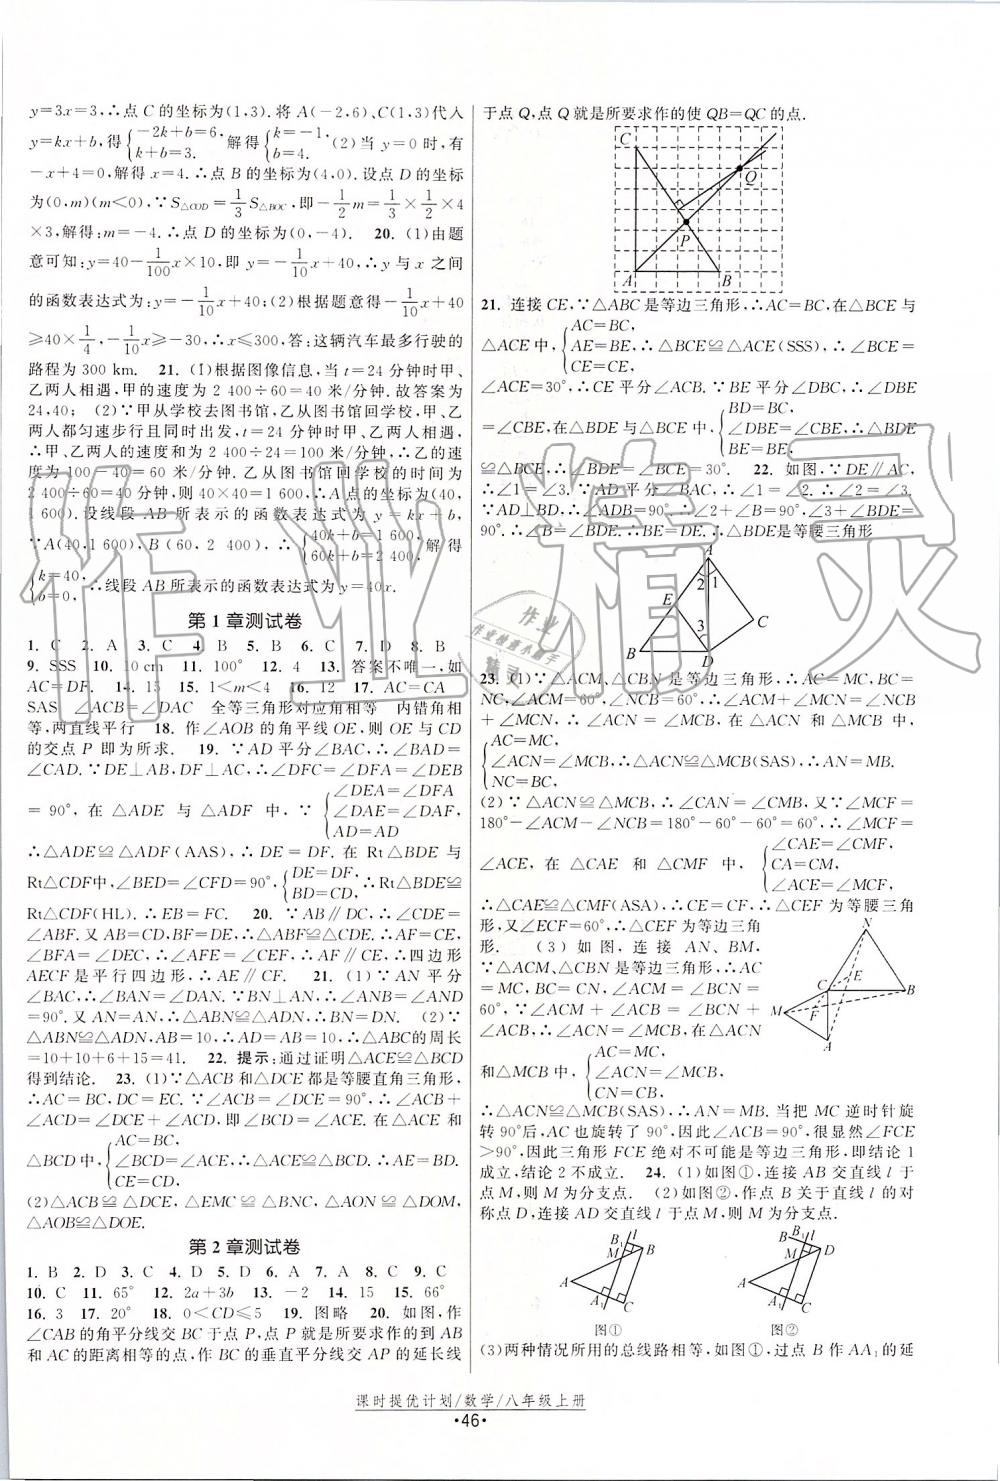 y=3x=3,∴点 C 的坐标为(1,3).将 A(-2,6)、C(1,3)代入
y=kx+b,得{-2k+b=6, k+b=3. 解得{k=-1, b=4. (2)当 y=0 时,有
-x+4=0,解得 x=4.∴点 B 的坐标为(4,0).设点 D 的坐标
为(0,m)(m<0),∵S△COD=1/3 S△BOC,即-1/2 m=1/3×1/2×4
×3,解得:m=-4.∴点 D 的坐标为(0,-4). 20. (1)由题
意可知:y=40-x/100×10,即 y=40-1/10 x.∴y 与 x 之间
的函数表达式为:y=-1/10 x+40;(2)根据题意得-1/10 x+40
≥40×1/4,-1/10 x≥-30,∴x≤300.答:这辆汽车最多行驶的
路程为 300 km. 21. (1)根据图像信息,当 t=24 分钟时甲、
乙两人相遇,甲的速度为 2 400÷60=40 米/分钟.故答案为
24,40; (2)∵甲从学校去图书馆,乙从图书馆回学校,甲、乙
两人都匀速步行且同时出发,t=24 分钟时两人相遇,
∴甲、乙两人的速度和为 2 400÷24=100 米/分钟,∴乙的速
度为 100-40=60 米/分钟.乙从图书馆回学校的时间为
2 400÷60=40 分钟,则 40×40=1 600,∴A 点的坐标为(40,
1 600).设线段 AB 所表示的函数表达式为 y=kx+b,
∵A(40,1 600),B(60,2 400),∴{40k+b=1 600, 60k+b=2 400, 解得
{k=40, b=0. ∴线段 AB 所表示的函数表达式为 y=40x.
第 1 章测试卷
1. C 2. A 3. C 4. B 5. B 6. D 7. D 8. B
9. SSS 10. 10 cm 11. 100° 12. 4 13. 答案不唯一,如
AC=DF. 14. 15 15. 1<m<4 16. 12 17. AC=CA
SAS ∠ACB=∠DAC 全等三角形对应角相等 内错角相
等,两直线平行 18. 作∠AOB 的角平线 OE,则 OE 与 CD
的交点 P 即为所求. 19. ∵AD 平分∠BAC,∴∠BAD=
∠CAD.∵DE⊥AB,DF⊥AC,∴∠DFC=∠DFA=∠DEB
=90°,在 △ADE 与 △ADF 中,∵{∠DEA=∠DFA ∠DAE=∠DAF, AD=AD
∴△ADE≌△ADF(AAS),∴DE=DF. 在 Rt△BDE 与
Rt△CDF中,∠BED=∠CFD=90°,{DE=DF, BD=CD, ∴Rt△BDE≌
Rt△CDF(HL).∴EB=FC. 20. ∵AB∥DC,∴∠CDE=
∠ABF.又 AB=CD,BF=DE,∴△ABF≌△CDE.∴AF=CE,
∠BFA=∠DEC,∴∠AFE=∠CEF,∴AF∥CE,∴四边形
AECF 是平行四边形,∴AE∥CF. 21. (1)∵AN 平分
∠BAC,∴∠BAN=∠DAN.∵BN⊥AN,∴∠ANB=∠AND
=90°.又 AN=AN,∴△ABN≌△ADN,∴BN=DN. (2)∵
△ABN≌△ADN,AB=10,∴AD=AB=10,∴△ABC的周长
=10+10+6+15=41. 22. 提示:通过证明△ACE≌△BCD
得到结论. 23. (1)∵△ACB 和△DCE 都是等腰直角三角形,
∴AC=BC,DC=EC.∵∠ACB=∠DCE=90°,∴∠ACB+
∠ACD=∠DCE+∠ACD,即∠BCD=∠ACE.在△ACE 和
△BCD 中{AC=BC, ∠BCD=∠ACE, CE=CD. ∴△ACE≌△BCD.∴AE=BD.
(2)△ACB≌△DCE,△EMC≌△BNC,△AON≌△DOM,
△AOB≌△DOE.
第 2 章测试卷
1. B 2. D 3. C 4. D 5. D 6. B 7. A 8. C 9. C
10. C 11. 65° 12. 2a+3b 13. -2 14. 15 15. 66°
16. 3 17. 20° 18. 0<CD≤5 19. 图略 20. 如图,作
∠CAB 的角平分线交 BC 于点 P,点 P 就是所要求作的到 AB
和 AC 的距离相等的点,作 BC 的垂直平分线交 AP 的延长线
于点 Q,点 Q 就是所要求作的使 QB=QC 的点.
C
Q
P
A B
21. 连接 CE,∵△ABC 是等边三角形,∴AC=BC,在△BCE 与
△ACE 中,{AC=BC, AE=BE, CE=CE, ∴△BCE≌△ACE(SSS),∴∠BCE=
∠ACE=30°,∴CE 平分∠ACB.∵BE 平分∠DBC,∴∠DBE
=∠CBE,在△BDE 与△BCE 中,{BD=BC, ∠DBE=∠CBE, BE=BE, ∴△BDE
≌△BCE,∴∠BDE=∠BCE=30°. 22. 如图,∵DE∥AC,
∴∠1=∠3.∵AD 平分∠BAC,∴∠1=∠2.∴∠2=∠3.
∵AD⊥BD,∴∠ADB=90°,∴∠2+∠B=90°,∠3+∠BDE=
90°.∴∠B=∠BDE.∴BE=DE.∴△BDE是等腰三角形
A
2 1
E
3 C
B D
23. (1)∵△ACM、△CBN 是等边三角形,∴AC=MC,BC=
NC,∠ACM=60°,∠NCB=60°,∴∠ACM+∠MCN=∠NCB
+∠MCN,∴∠ACN=∠MCB,在△ACN 和△MCB 中,
{AC=MC, ∠ACN=∠MCB, NC=BC, ∴△ACN≌△MCB(SAS),∴AN=MB.
(2)∵△ACN≌△MCB,∴∠CAN=∠CMB,又∵∠MCF=
180°-∠ACM-∠NCB=180°-60°-60°=60°,∴∠MCF=
∠ACE,在△CAE 和△CMF 中,{∠CAE=∠CMF, CA=CM, ∠ACE=∠MCF,
∴△CAE≌△CMF(ASA),∴CE=CF,∴△CEF 为等腰三角
形,又∠ECF=60°,∴△CEF 为等边三角
形. (3)如图,连接 AN、BM,
∵△ACM、△CBN 是等边三角形,∴AC=
MC,BC=CN,∠ACM=∠BCN=
60°,∵∠ACM+∠ACB=∠BCN+
∠ACB,∴∠ACN=∠MCB,在△ACN
和△MCB 中,{AC=MC, ∠ACN=∠MCB, CN=CB,
N
C E
B
M F
A
∴△ACN≌△MCB(SAS),∴AN=MB. 当把 MC 逆时针旋
转 90°后,AC 也旋转了 90°,因此∠ACB=90°,很显然∠FCE
>90°,因此三角形 FCE 绝对不可能是等边三角形,即结论 1
成立,结论 2 不成立. 24. (1)如图①,连接 AB 交直线 l 于
点 M,则 M 为分支点. (2)如图②,作点 B 关于直线 l 的对
称点 D,连接 AD 交直线 l 于点 M,则 M 为分支点.
B₁ l
M B
A
A₁ C
图①
B₁ l
M D
A
C
图②
(3)两种情况所用的总线路相等,如图①,过点 B 作 AA₁ 的延
课时提优计划/数学/八年级上册
·46·
作业精灵